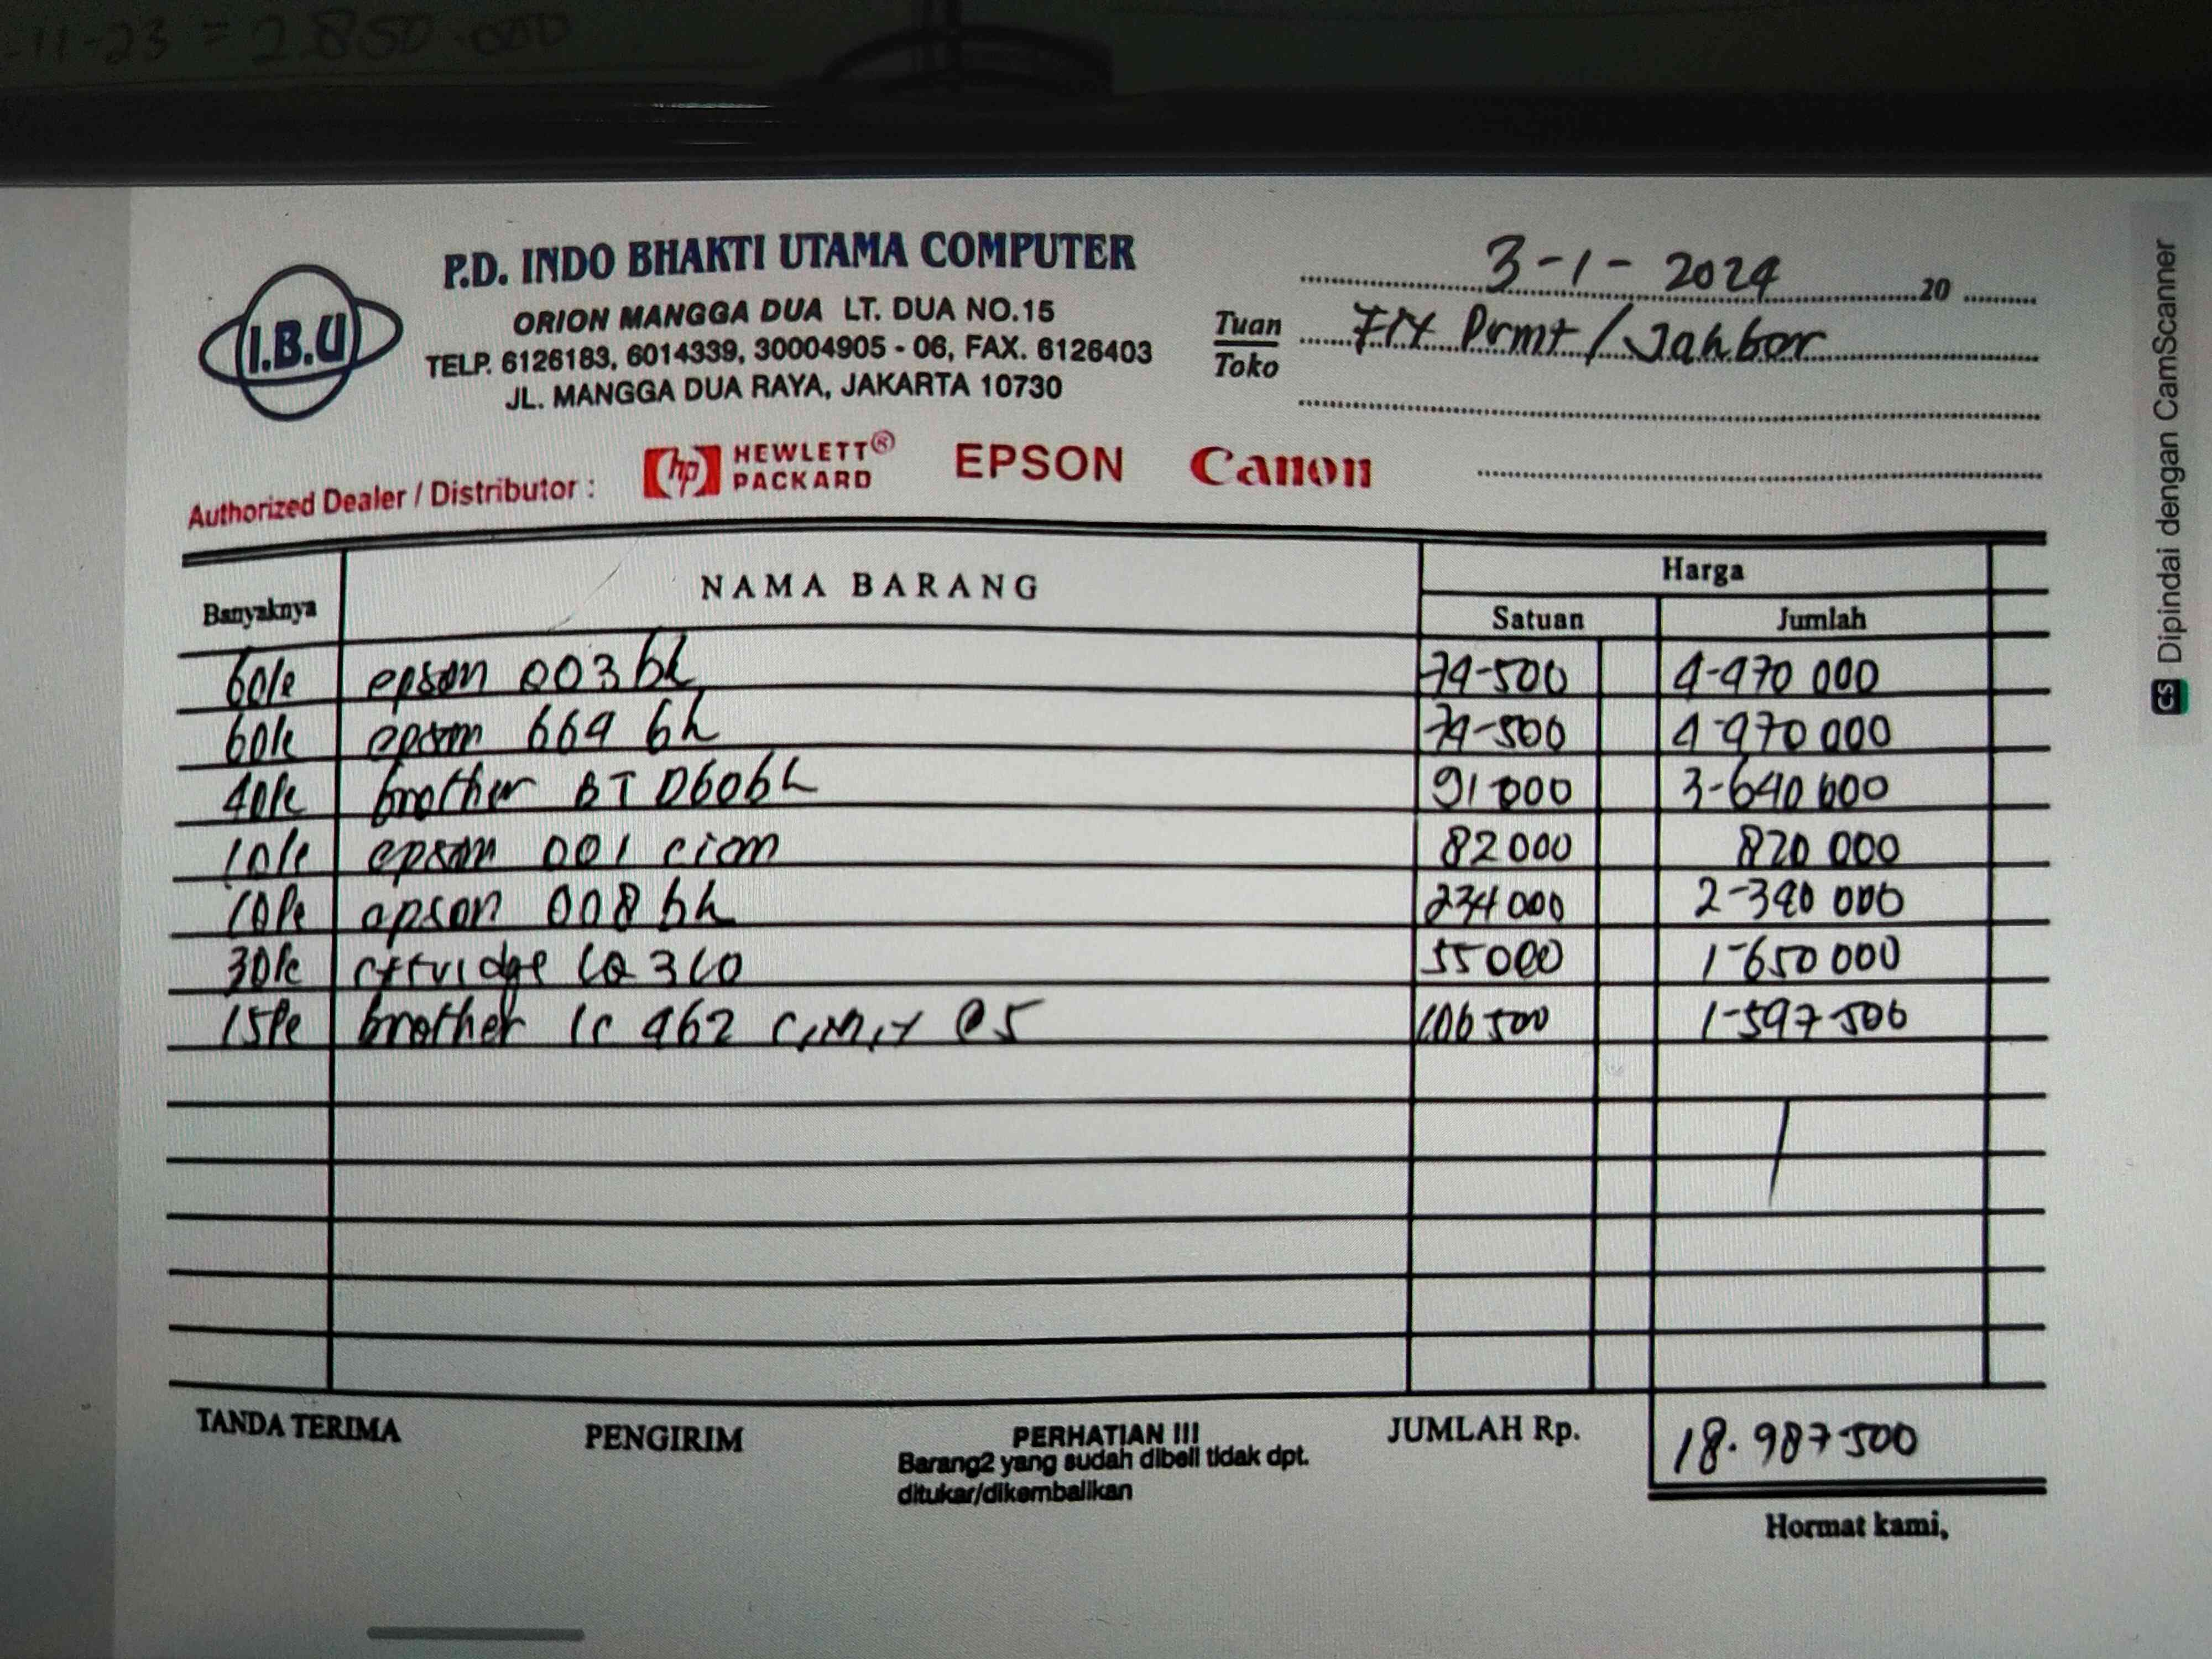 -11-23 = 2.850.000
P.D. INDO BHAKTI UTAMA COMPUTER
I.B.U
ORION MANGGA DUA LT. DUA NO.15
TELP. 6126183, 6014339, 30004905 - 06, FAX. 6126403
JL. MANGGA DUA RAYA, JAKARTA 10730
3-1-2024 20
Tuan
Toko
/ Jahbar
Authorized Dealer / Distributor : hp HEWLETT® PACKARD EPSON Canon
Banyaknya NAMA BARANG Harga
Satuan Jumlah
60 epson 003 bk 74-500 4-470 000
60 epson 664 bk 74-500 4-470 000
40 brother BT D60bk 91 000 3-640 000
10 epson 001 c,m 82 000 820 000
10 epson 008 bk 234 000 2-340 000
30 LQ 310 55000 1-650 000
15 brother lc 462 c,m,y @5 106 500 1-597-500
TANDA TERIMA PENGIRIM PERHATIAN !!! JUMLAH Rp. 18.987-500
Barang2 yang sudah dibeli tidak dpt.
ditukar/dikembalikan
Hormat kami,
CS Dipindai dengan CamScanner